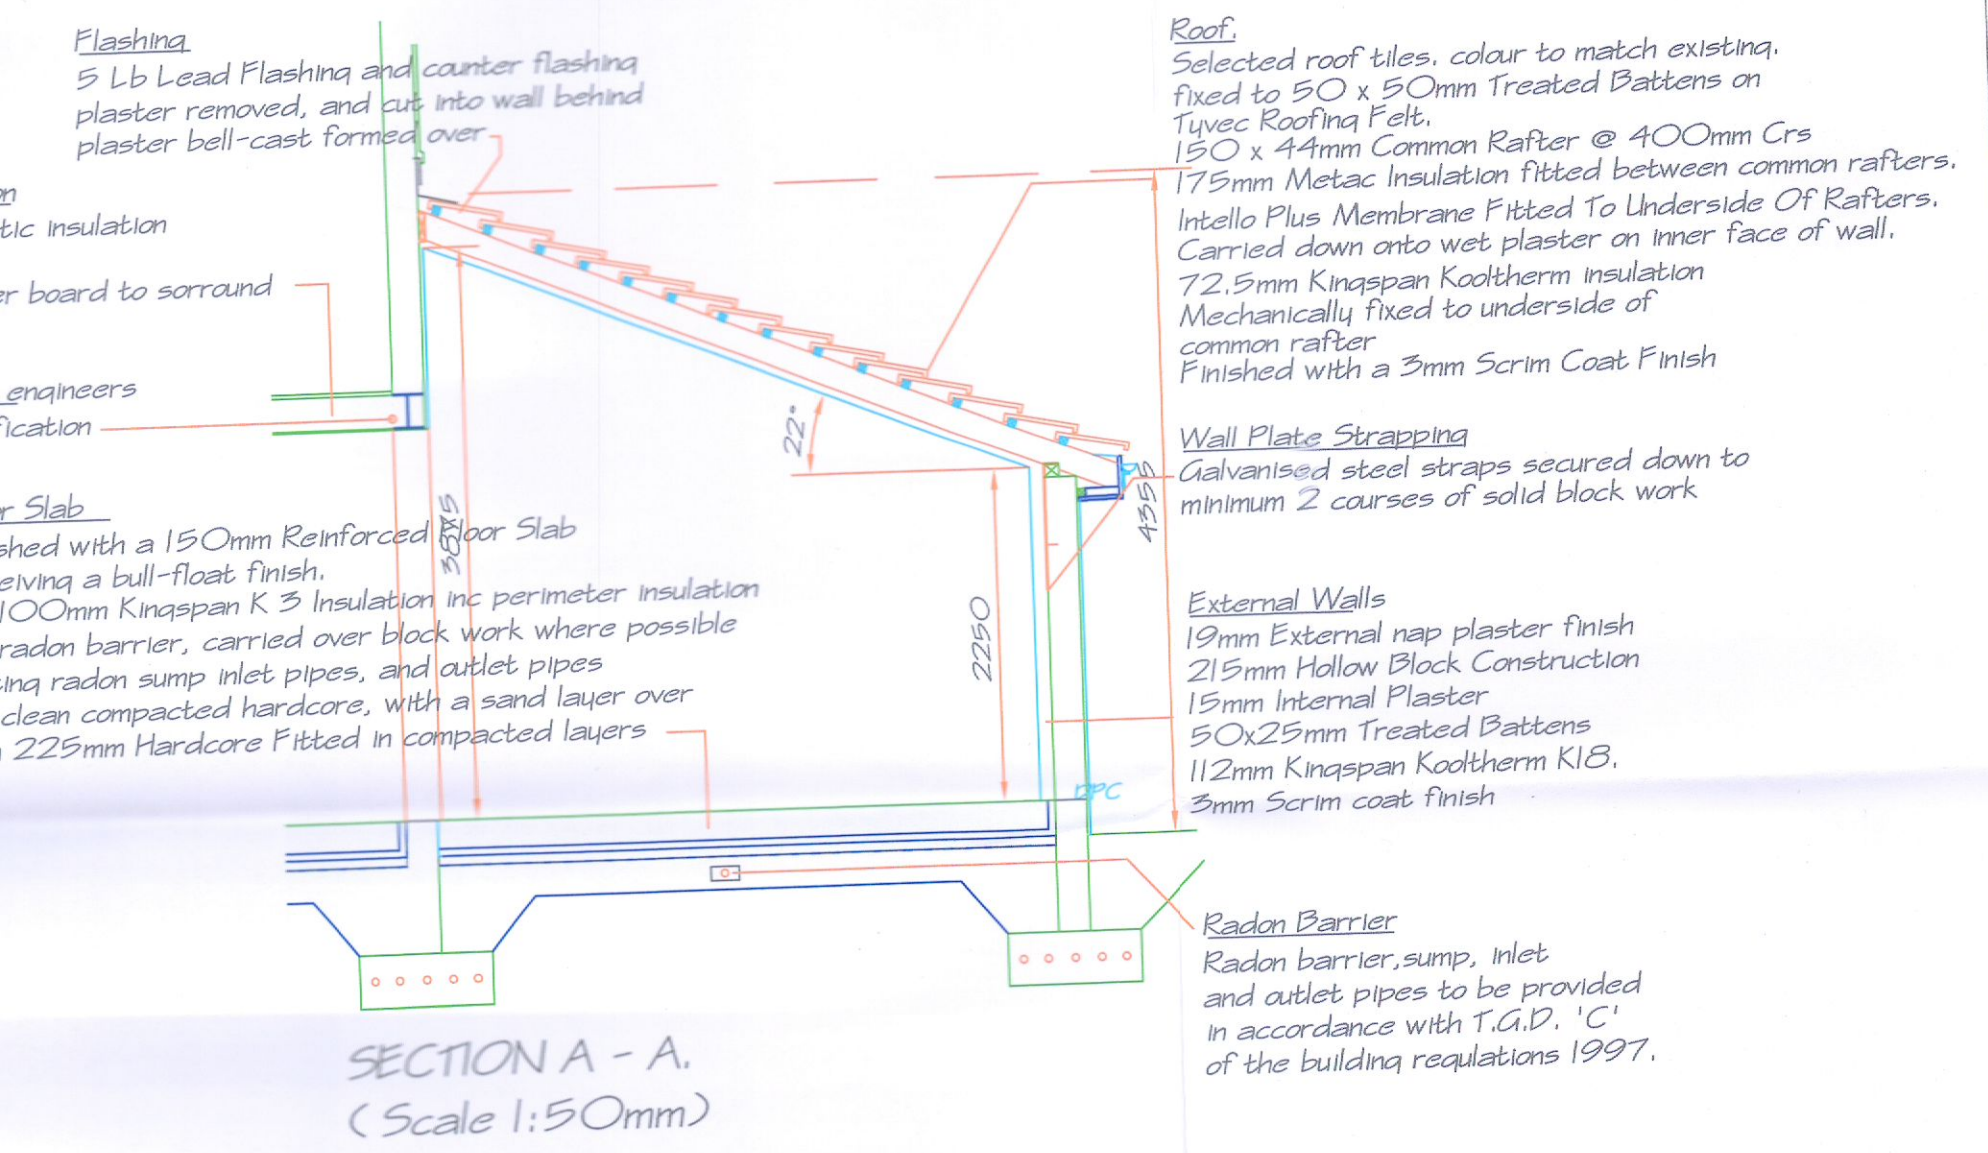 Flashing
5 Lb Lead Flashing and counter flashing
plaster removed, and cut into wall behind
plaster bell-cast formed over
on
tic insulation
er board to sorround
engineers
fication
r Slab
shed with a 150mm Reinforced Floor Slab
eiving a bull-float finish.
100mm Kingspan K 3 Insulation inc perimeter insulation
radon barrier, carried over block work where possible
ting radon sump inlet pipes, and outlet pipes
clean compacted hardcore, with a sand layer over
225mm Hardcore Fitted in compacted layers
22°
2250
4355
DPC
Roof.
Selected roof tiles. colour to match existing.
fixed to 50 x 50mm Treated Battens on
Tyvec Roofing Felt.
150 x 44mm Common Rafter @ 400mm Crs
175mm Metac Insulation fitted between common rafters.
Intello Plus Membrane Fitted To Underside Of Rafters.
Carried down onto wet plaster on inner face of wall.
72.5mm Kingspan Kooltherm insulation
Mechanically fixed to underside of
common rafter
Finished with a 3mm Scrim Coat Finish
Wall Plate Strapping
Galvanised steel straps secured down to
minimum 2 courses of solid block work
External Walls
19mm External nap plaster finish
215mm Hollow Block Construction
15mm Internal Plaster
50x25mm Treated Battens
112mm Kingspan Kooltherm K18.
3mm Scrim coat finish
Radon Barrier
Radon barrier,sump, inlet
and outlet pipes to be provided
in accordance with T.G.D. 'C'
of the building regulations 1997.
SECTION A - A.
( Scale 1:50mm)